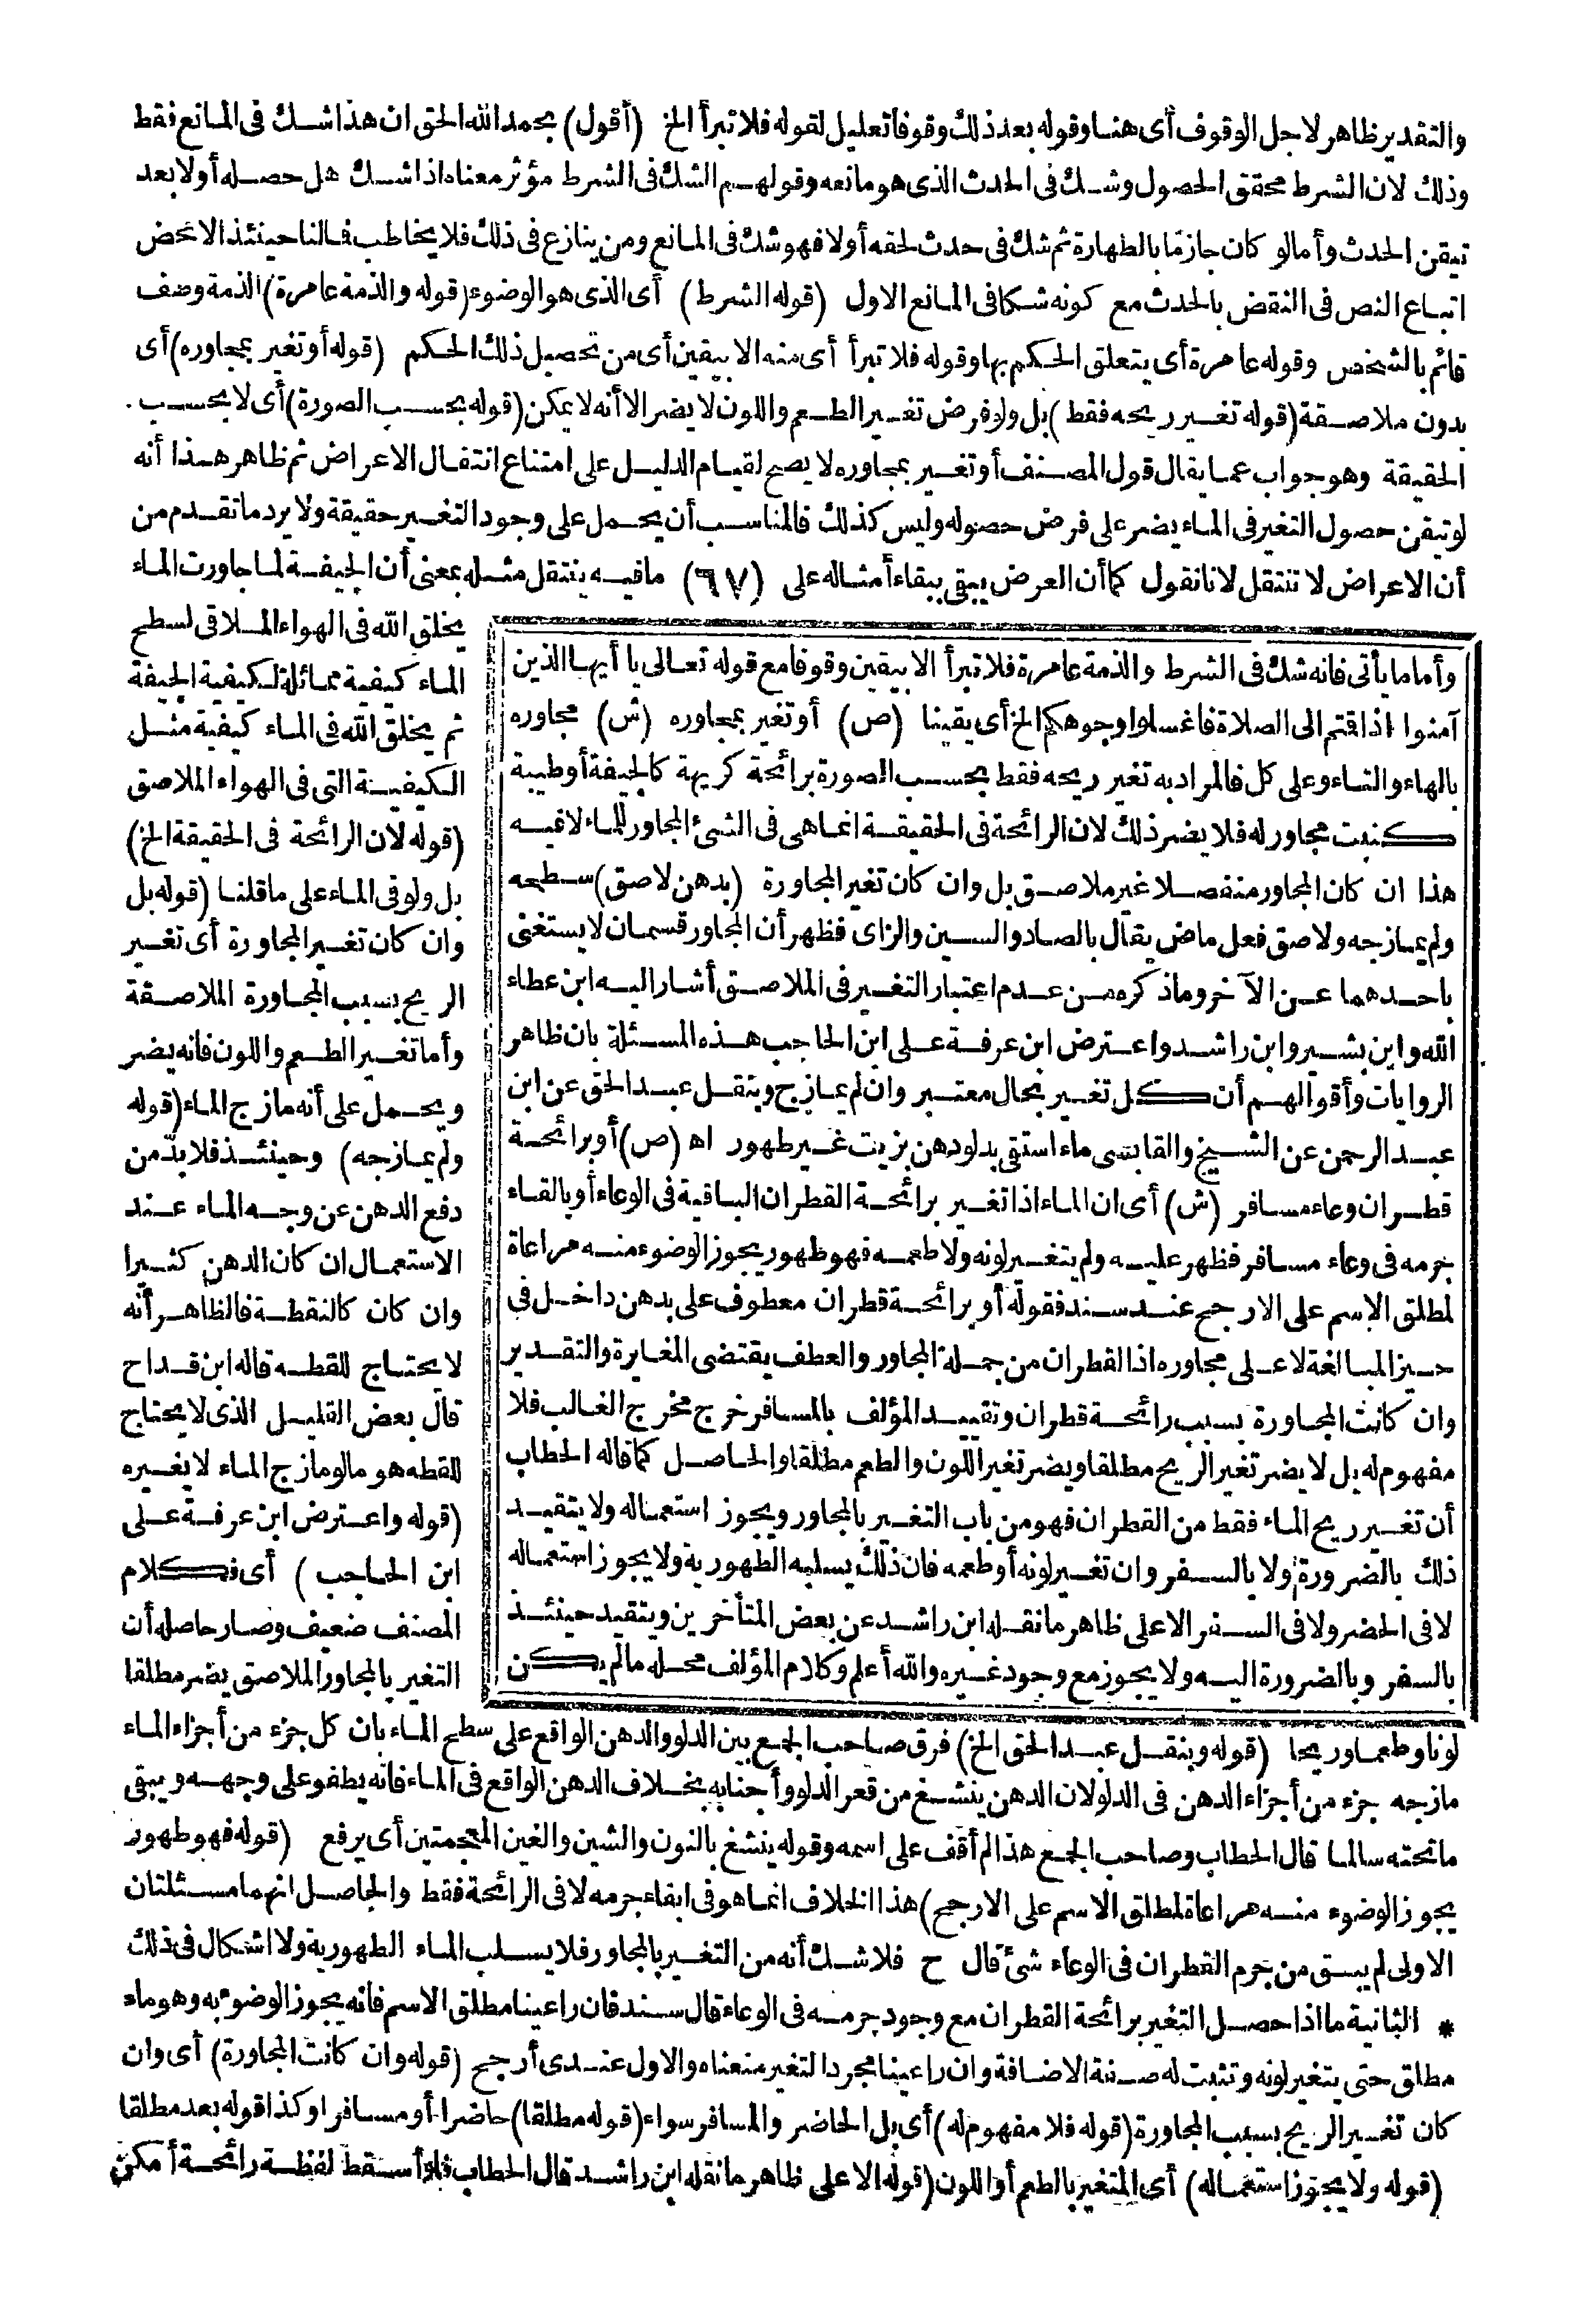 والتقدير ظاهر لاجل الوقوف أى هنا وقوله بعد ذلك وقوفا تعليل لقوله فلا تبرأ الخ (أقول) بحمد الله الحق ان هذا شك فى المانع فقط
وذلك لان الشرط محقق الحصول وشك فى الحدث الذى هو مانعه وقولهم الشك فى الشرط مؤثر معناه اذا شك هل حصله أولا بعد
تيقن الحدث وأما لو كان جازما بالطهارة ثم شك فى حدث لحقه أولا فهو شك فى المانع ومن ينازع فى ذلك فلا يخاطب فالنا حينئذ الا محض
اتباع النص فى النقض بالحدث مع كونه شكا فى المانع الاول (قوله الشرط) أى الذى هو الوضوء (قوله والذمة عامرة) الذمة وصف
قائم بالشخص وقوله عامرة أى يتعلق الحكم بها وقوله فلا تبرأ أى منه الا بيقين أى من تحصيل ذلك الحكم (قوله أو تغير بمجاوره) أى
بدون ملاصقة (قوله تغير ريحه فقط) بل ولو فرض تغير الطعم واللون لا يضر الا أنه لا يمكن (قوله بحسب الصورة) أى لا بحسب
الحقيقة وهو جواب عما يقال قول المصنف أو تغير بمجاوره لا يصح لقيام الدليل على امتناع انتقال الاعراض ثم ظاهر هذا أنه
لو تيقن حصول التغير فى الماء يضر على فرض حصوله وليس كذلك فالمناسب أن يحمل على وجود التغير حقيقة ولا يرد ما تقدم من
أن الاعراض لا تنتقل لانا نقول كما أن العرض يبقى ببقاء أمثاله على (٦٧) ما فيه ينتقل مثله بمعنى أن الجيفة لما جاورت الماء
يخلق الله فى الهواء الملاقى لسطح
الماء كيفية مماثلة لكيفية الجيفة
ثم يخلق الله فى الماء كيفية مثل
الكيفية التى فى الهواء الملاصق
(قوله لان الرائحة فى الحقيقة الخ)
بل ولو فى الماء على ما قلنا (قوله بل
وان كان تغير المجاورة أى تغير
الريح بسبب المجاورة الملاصقة
وأما تغير الطعم واللون فانه يضر
ويحمل على أنه مازج الماء (قوله
ولم يمازجه) وحينئذ فلا بد من
دفع الدهن عن وجه الماء عند
الاستعمال ان كان الدهن كثيرا
وان كان كالنقطة فالظاهر أنه
لا يحتاج للقطه قاله ابن قداح
قال بعض القليل الذى لا يحتاج
للقطه هو ما لو مازج الماء لا يغيره
(قوله واعترض ابن عرفة على
ابن الحاجب) أى فكلام
المصنف ضعيف وصار حاصله أن
التغير بالمجاور الملاصق يضر مطلقا
وأما ما يأتى فانه شك فى الشرط والذمة عامرة فلا تبرأ الا بيقين وقوفا مع قوله تعالى يا أيها الذين
آمنوا اذا قتم الى الصلاة فاغسلوا وجوهكم الخ أى يقينا (ص) أو تغير بمجاوره (ش) مجاوره
بالهاء والتاء وعلى كل فالمراد به تغير ريحه فقط بحسب الصورة برائحة كريهة كالجيفة أو طيبة
كنبت مجاور له فلا يضر ذلك لان الرائحة فى الحقيقة انما هى فى الشئ المجاور للماء لا فيه
هذا ان كان المجاور منفصلا غير ملاصق بل وان كان تغير المجاورة (بدهن لاصق) سطحه
ولم يمازجه ولاصق فعل ماض يقال بالصاد والسين والزاى فظهر أن المجاور قسمان لا يستغنى
باحدهما عن الآخر وما ذكره من عدم اعتبار التغير فى الملاصق أشار اليه ابن عطاء
الله وابن بشير وابن راشد واعترض ابن عرفة على ابن الحاجب هذه المسئلة بان ظاهر
الروايات وأقوالهم أن كل تغير بحال معتبر وان لم يمازج وبنقل عبد الحق عن ابن
عبد الرحمن عن الشيخ والقابسى ماء استقى بدلو دهن بزيت غير طهور اه (ص) أو برائحة
قطران وعاء مسافر (ش) أى ان الماء اذا تغير برائحة القطران الباقية فى الوعاء أو بالقاء
جرمه فى وعاء مسافر فظهر عليه ولم يتغير لونه ولا طعمه فهو طهور يجوز الوضوء منه مراعاة
لمطلق الاسم على الارجح عند سند فقوله أو برائحة قطران معطوف على بدهن داخل فى
حيز المبالغة لا على مجاوره اذ القطران من جملة المجاور والعطف يقتضى المغايرة والتقدير
وان كانت المجاورة بسبب رائحة قطران وتقييد المؤلف بالمسافر خرج مخرج الغالب فلا
مفهوم له بل لا يضر تغير الريح مطلقا ويضر تغير اللون والطعم مطلقا والحاصل كما قاله الحطاب
أن تغير ريح الماء فقط من القطران فهو من باب التغير بالمجاور ويجوز استعماله ولا يتقيد
ذلك بالضرورة ولا بالسفر وان تغير لونه أو طعمه فان ذلك يسلبه الطهورية ولا يجوز استعماله
لا فى الحضر ولا فى السفر الا على ظاهر ما نقله ابن راشد عن بعض المتأخرين ويتقيد حينئذ
بالسفر وبالضرورة اليه ولا يجوز مع وجود غيره والله أعلم وكلام المؤلف محله ما لم يكن
لونا وطعما وريحا (قوله وبنقل عبد الحق الخ) فرق صاحب الجمع بين الدلو والدهن الواقع على سطح الماء بان كل جزء من أجزاء الماء
مازجه جزء من أجزاء الدهن فى الدلو لان الدهن ينشغ من قعر الدلو وأجنابه بخلاف الدهن الواقع فى الماء فانه يطفو على وجهه ويبقى
ما تحته سالما قال الحطاب وصاحب الجمع هذا لم أقف على اسمه وقوله ينشغ بالنون والشين والغين المعجمتين أى يرفع (قوله فهو طهور
يجوز الوضوء منه مراعاة لمطلق الاسم على الارجح) هذا الخلاف انما هو فى ابقاء جرمه لا فى الرائحة فقط والحاصل انهما مسئلتان
الاولى لم يبق من جرم القطران فى الوعاء شئ قال ح فلا شك أنه من التغير بالمجاور فلا يسلب الماء الطهورية ولا اشكال فى ذلك
* الثانية ما اذا حصل التغير برائحة القطران مع وجود جرمه فى الوعاء قال سند فان راعينا مطلق الاسم فانه يجوز الوضوء به وهو ماء
مطلق حتى يتغير لونه وتثبت له صفة الاضافة وان راعينا مجرد التغير منعناه والاول عندى أرجح (قوله وان كانت المجاورة) أى وان
كان تغير الريح بسبب المجاورة (قوله فلا مفهوم له) أى بل الحاضر والمسافر سواء (قوله مطلقا) حاضرا أو مسافرا وكذا قوله بعد مطلقا
(قوله ولا يجوز استعماله) أى المتغير بالطعم أو اللون (قوله الا على ظاهر ما نقله ابن راشد قال الحطاب فلو أسقط لفظة رائحة أمكن